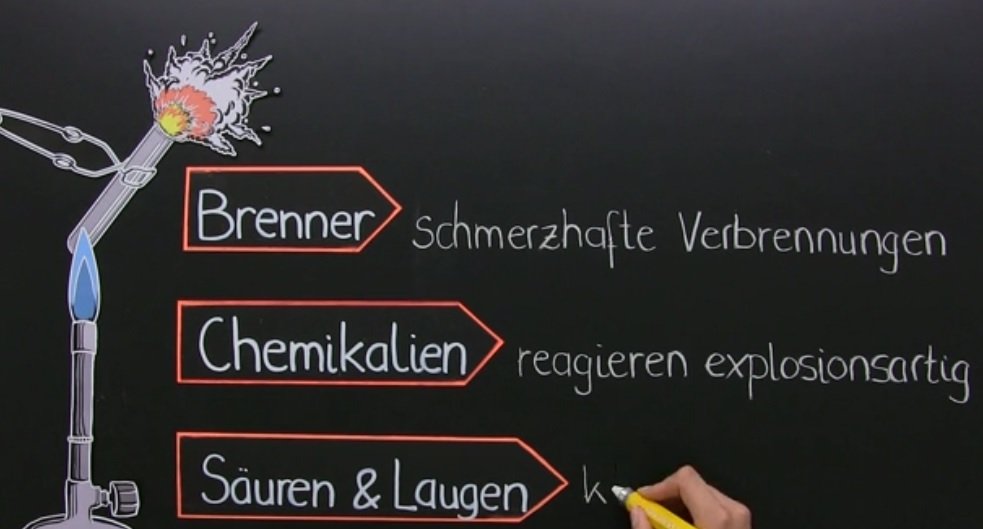 Brenner schmerzhafte Verbrennungen
Chemikalien reagieren explosionsartig
Säuren & Laugen k